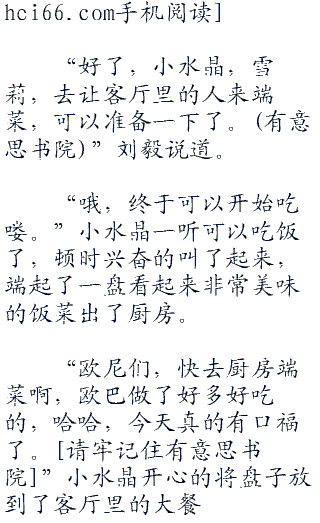 hci66.com手机阅读]
“好了，小水晶，雪
莉，去让客厅里的人来端
菜，可以准备一下了。(有意
思书院)”刘毅说道。
“哦，终于可以开始吃
喽。”小水晶一听可以吃饭
了，顿时兴奋的叫了起来，
端起了一盘看起来非常美味
的饭菜出了厨房。
“欧尼们，快去厨房端
菜啊，欧巴做了好多好吃
的，哈哈，今天真的有口福
了。[请牢记住有意思书
院]”小水晶开心的将盘子放
到了客厅里的大餐